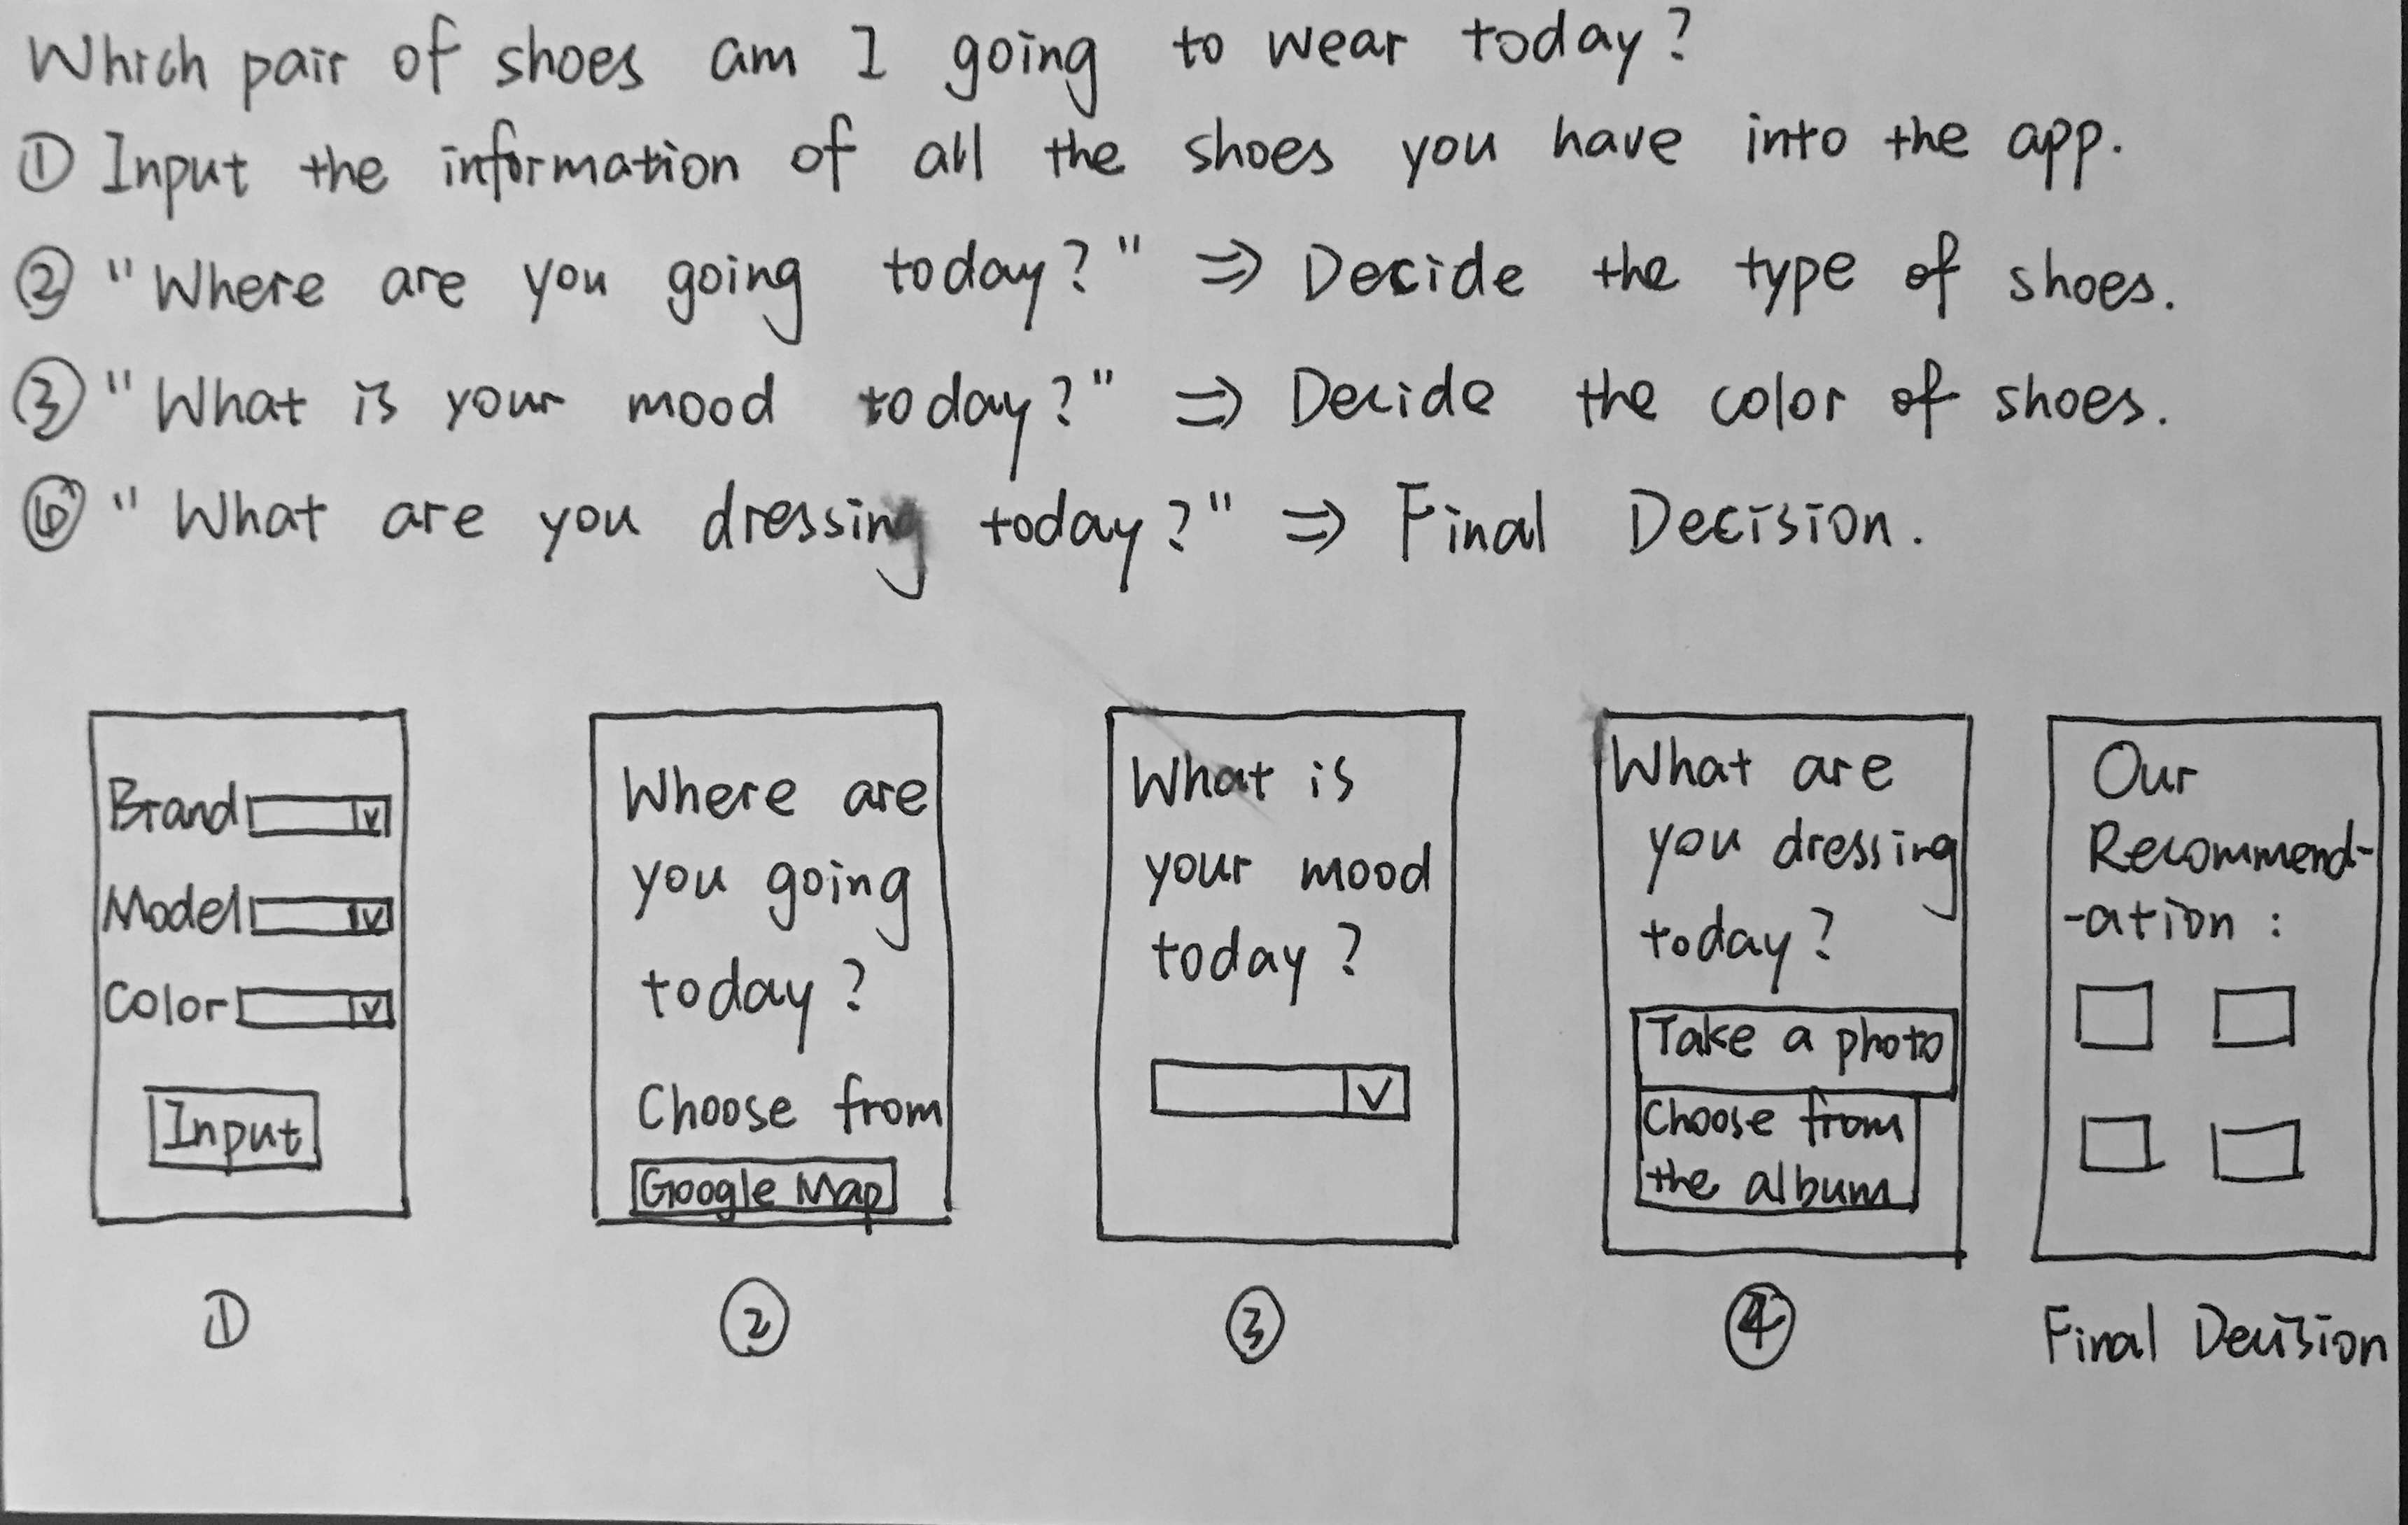 Which pair of shoes am I going to wear today?
① Input the information of all the shoes you have into the app.
② "Where are you going today?" ⇒ Decide the type of shoes.
③ "What is your mood today?" ⇒ Decide the color of shoes.
"What are you dressing today?" ⇒ Final Decision.
Brand
Model
Color
Input
①
Where are
you going
today?
Choose from
Google Map
②
What is
your mood
today?
③
What are
you dressing
today?
Take a photo
Choose from
the album
④
Our
Recommend-
-ation:
Final Decision